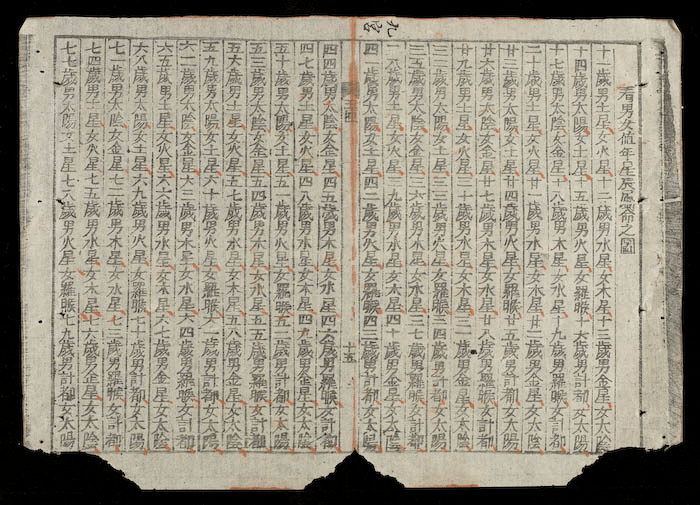 九宮
看男女值年星辰属命之圖
十一歲男土星女火星十二歲男水星女木星十三歲男金星女太陰
十四歲男太陽女土星十五歲男火星女羅睺十六歲男計都女太陽
十七歲男太陰女金星十八歲男木星女水星十九歲男羅睺女計都
二十歲男土星女火星廿一歲男水星女木星廿二歲男金星女太陰
廿三歲男太陽女土星廿四歲男火星女羅睺廿五歲男計都女太陽
廿六歲男太陰女金星廿七歲男木星女水星廿八歲男羅睺女計都
廿九歲男土星女火星三十歲男水星女木星三一歲男金星女太陰
三二歲男太陽女土星三三歲男火星女羅睺三四歲男計都女太陽
三五歲男太陰女金星三六歲男木星女水星三七歲男羅睺女計都
三八歲男土星女火星三九歲男水星女木星四十歲男金星女太陰
四一歲男太陽女土星四二歲男火星女羅睺四三歲男計都女太陽
十五
四四歲男太陰女金星四五歲男木星女水星四六歲男羅睺女計都
四七歲男土星女火星四八歲男水星女木星四九歲男金星女太陰
五十歲男太陽女土星五一歲男火星女羅睺五二歲男計都女太陽
五三歲男太陰女金星五四歲男木星女水星五五歲男羅睺女計都
五六歲男土星女火星五七歲男水星女木星五八歲男金星女太陰
五九歲男太陽女土星六十歲男火星女羅睺六一歲男計都女太陽
六二歲男太陰女金星六三歲男木星女水星六四歲男羅睺女計都
六五歲男土星女火星六六歲男水星女木星六七歲男金星女太陰
六八歲男太陽女土星六九歲男火星女羅睺七十歲男計都女太陽
七一歲男太陰女金星七二歲男木星女水星七三歲男羅睺女計都
七四歲男土星女火星七五歲男水星女木星七六歲男金星女太陰
七七歲男太陽女土星七八歲男火星女羅睺七九歲男計都女太陽